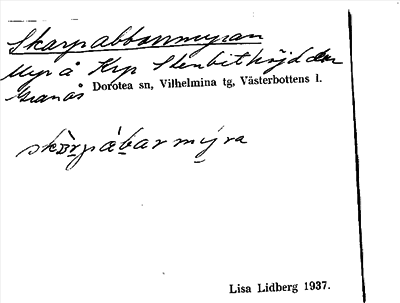 Skarpabborrmyran
Myr å Krp Stenbithöjden
Granås Dorotea sn, Vilhelmina tg, Västerbottens l.
Lisa Lidberg 1937.